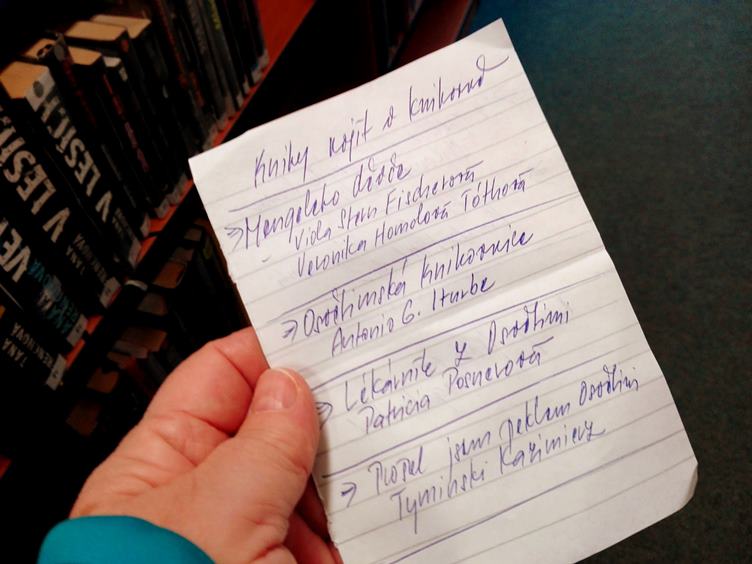 Knihy najít v knihovně
→ Mengeleho děvče
- Viola Stern Fischerová
Veronika Homolová Tóthová
→ Osvětimská knihovnice
Antonio G. Iturbe
→ Lékárník z Osvětimi
Patricia Posnerová
→ Prošel jsem peklem Osvětimi
Tymiński Kazimierz
V LESÍCH
V LESÍCH
JANA
JANA